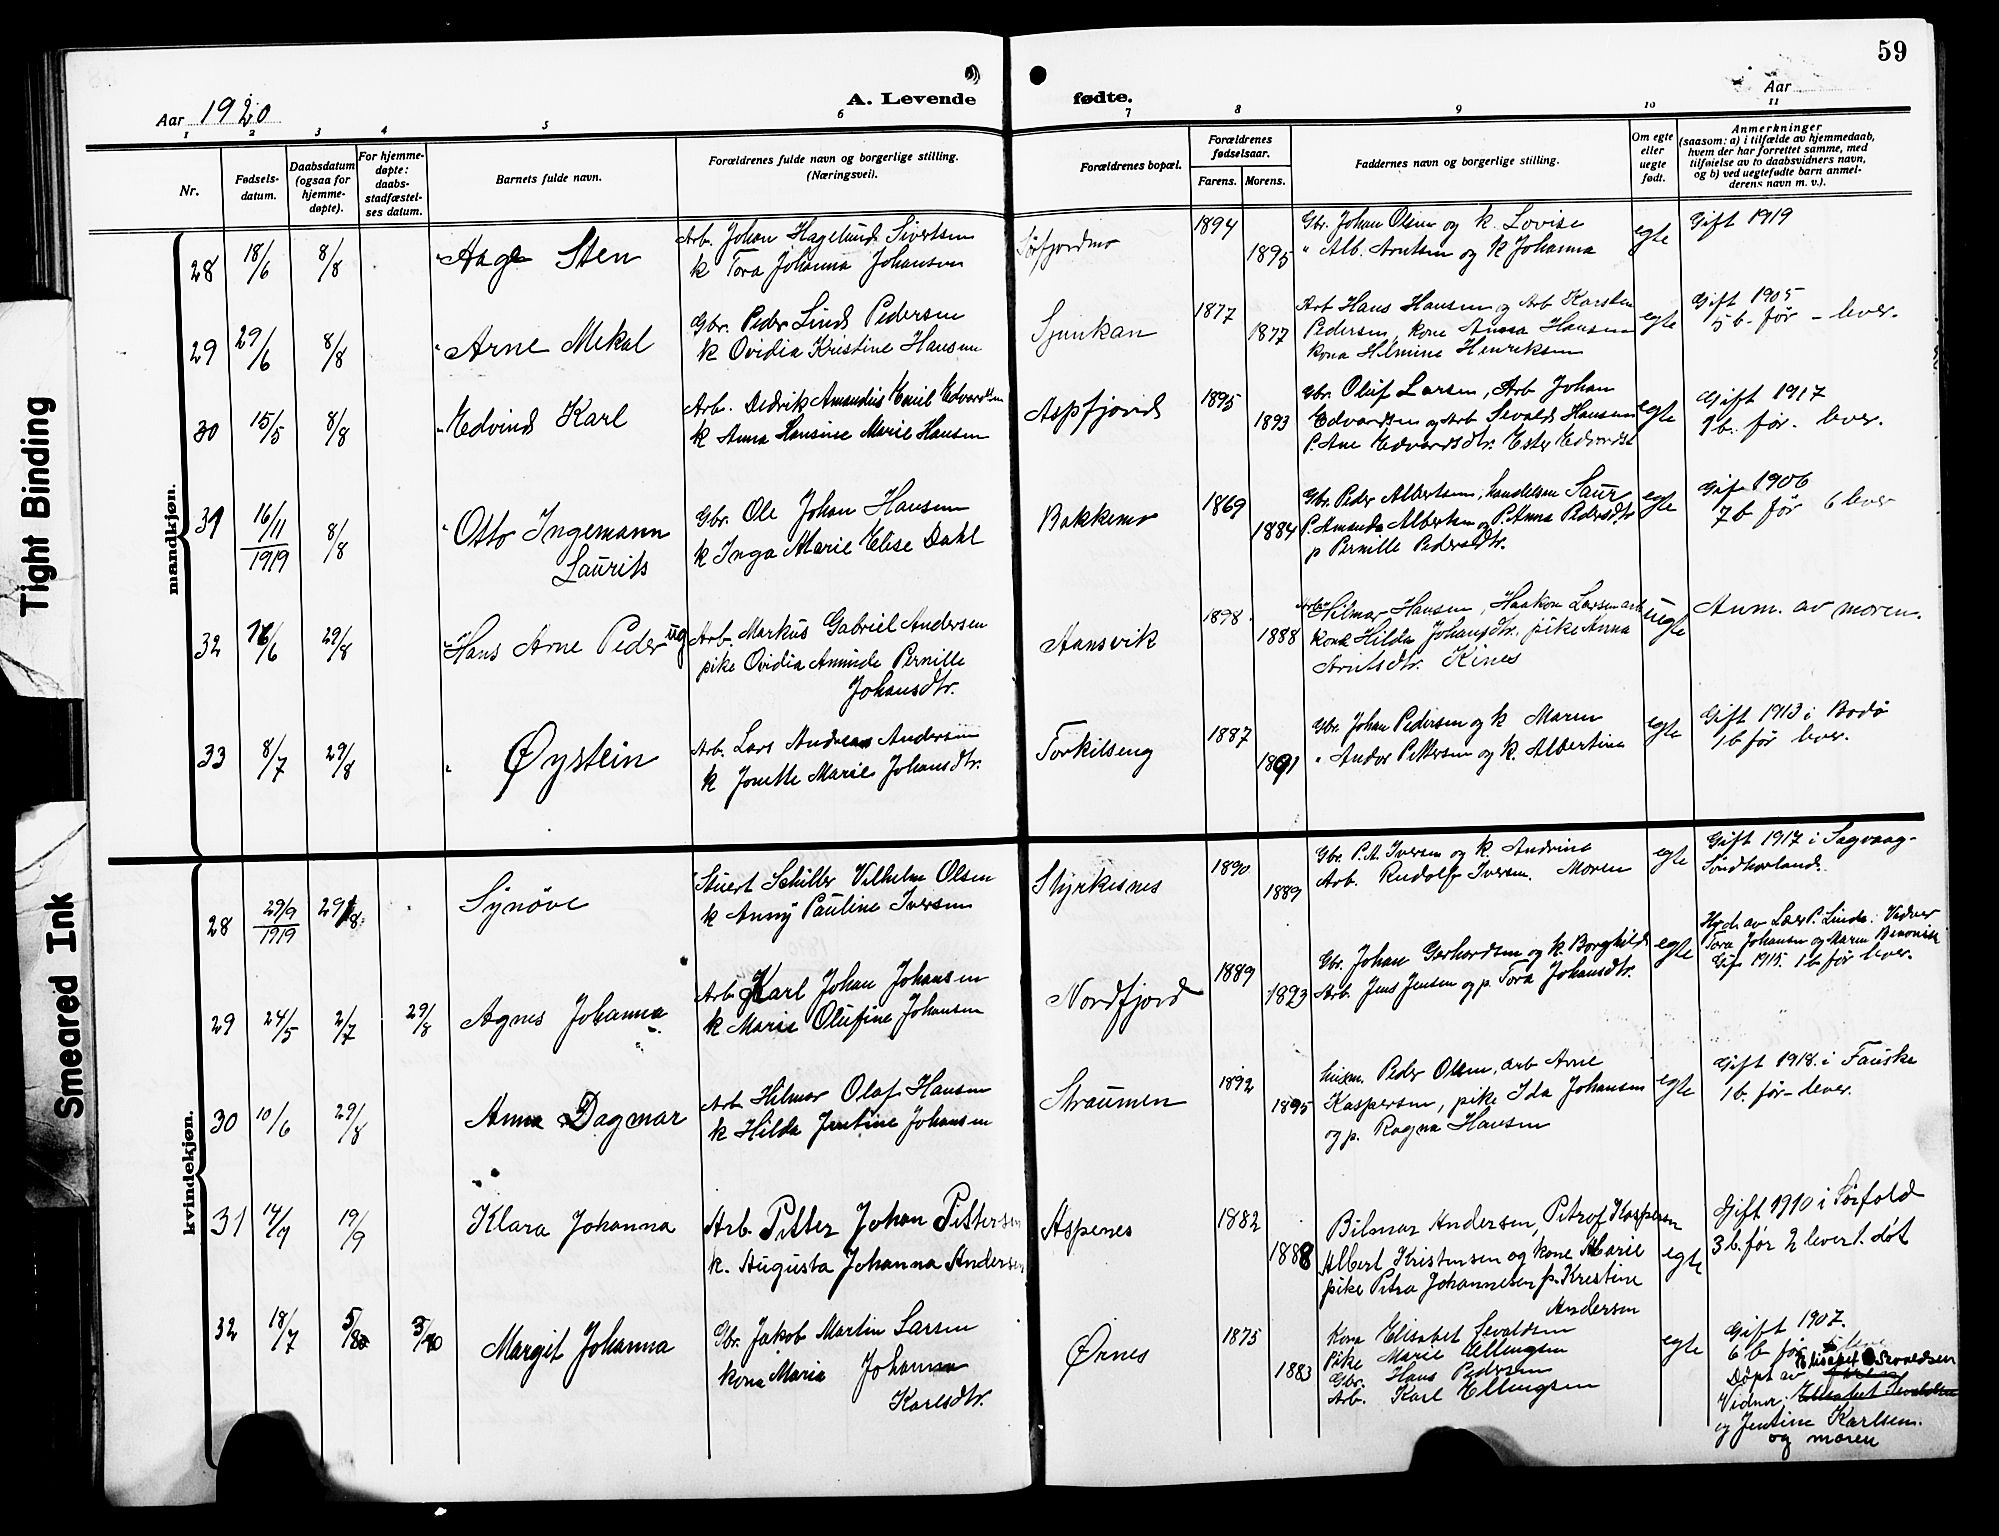 59
Aar 1920
A. Levende fødte.
Aar
1 2 3 4 5 6 7 8 9 10 11
Nr.
Fødsels-
datum.
Daabsdatum
(ogsaa for
hjemme-
døpte).
For hjemme-
døpte:
daabs-
stadfæstel-
ses datum.
Barnets fulde navn.
Forældrenes fulde navn og borgerlige stilling.
(Næringsvei).
Forældrenes bopæl.
Forældrenes
fødselsaar.
Farens. Morens.
Faddernes navn og borgerlige stilling.
Om egte
eller
uegte
født.
Anmerkninger
(saasom: a) i tilfælde av hjemmedaab,
hvem der har forrettet samme, med
tilføielse av to daabsvidners navn,
og b) ved uegtefødte barn anmel-
derens navn m. v.).
mandkjøn.
28 18/6 8/8 Aage Sten
Arb. Johan Hagelund Sivertsen
k Tora Johanna Johansen
Sørfjordmo 1894 1895
Gbr. Johan Olsen og k. Lovise
" Alb. Arntsen og k Johanna
egte
Gift 1919
29 29/6 8/8 Arne Mekal
Gbr. Peder Lind Pedersen
k Ovidia Kristine Hansen
Sjunkan 1877 1877
Arb Hans Hansen og Arb Karsten
Pedersen, kone Anna Hansen
kona Hilmine Henriksen
egte
Gift 1905
5 b. før - lever.
30 15/5 8/8 Edvind Karl
Arb. Didrik Amandus Emil Edvardsen
k Anna Hansine Marie Hansen
Aspfjord 1895 1893
Gbr. Oluf Larsen, Arb Johan
Edvardsen og Arb Sevald Hansen
P. Ane Edvardsdtr. Ester Edvardsdt
egte
Gift 1917
1 b. før. lever.
31 16/11 1919 8/8 Otto Ingemann
Laurits
Gbr. Ole Johan Hansen
k Inga Marie Elise Dahl
Bakkemo 1869 1884
Gbr. Peder Albertsen, handelsm Saur
P. Amanda Albertsen og P. Anna Pedersdtr
p Pernille Pedersdtr.
egte
Gift 1906
7 b før 6 lever
32 16/6 29/8 Hans Arne Peder ug
Arb. Markus Gabriel Andersen
pike Ovidia Aminde Pernille
Johansdtr.
Aansvik 1898. 1888
Arb. Hilmar Hansen, Haakon Larsen arb
kone Hilda Johansdtr., pike Anna
Arntsdtr. Kines
uegte
Anm. av moren.
33 8/7 29/8 Øystein
Arb. Lars Andreas Andersen
k Jonette Marie Johansdtr.
Torkilseng 1887 1891
Gbr. Johan Pedersen og k Maren
" Andor Pettersen og k. Albertina
egte
Gift 1913 i Bodø
1 b før lever.
kvindekjøn.
28 29/9 1919 29/8 Synøve
Stuert Schiller Vilhelm Olsen
k Anny Pauline Iversen
Styrkesnes 1890 1889
Gbr. P. A. Iversen og k. Andrine
Arb. Rudolf Iversen. Moren
egte
Gift 1917 i Sagvaag-
Søndhorland.
29 24/5 2/7 29/8 Agnes Johanna
Arb. Karl Johan Johansen
k Marie Olufine Johansen
Nordfjord 1889 1893
Gbr. Johan Gerhardsen og k. Borghild
Arb. Jens Jensen og p. Tora Johansdtr.
egte
Hjd. av Lær P. Lind. Vidner
Tora Johansen og Maren Benonise
Gift 1915. 1 b før lever.
30 10/6 29/8 Anna Dagmar
Arb Hilmar Olaf Hansen
k Hilda Jentine Johansen
Straumen 1892 1895
husm. Peder Olsen, arb Arne
Kaspersen, pike Ida Johansen
og p. Ragna Hansen
egte
Gift 1918 i Fauske
1 b. før - lever.
31 14/7 19/9 Klara Johanna
Arb. Petter Johan Pettersen
k. Augusta Johanna Andersen
Aspenes 1882 1888
Bilmar Andersen, Petrof Kaspersen
Albert Kristensen og kone Marie
pike Petra Johannesen p. Kristine
Andersen
egte
Gift 1910 i Sørfold
3 b. før 2 lever 1. døt
32 18/7 5/8 3/10 Margit Johanna
Gbr. Jakob Martin Larsen
kona Maria Johanna
Karlsdtr.
Ørnes 1875 1883
Kona Elisabet Sevaldsen
Pike Marie Ellingsen
Gbr. Hans Pedersen
Arb. Karl Ellingsen
egte
Gift 1907.
6 b før 5 leve
Døpt av Elisabet Sevaldsen
Vidner: Elisabet Sevaldsen
og Jentine Karlsen.
og moren
Tight Binding
Smeared Ink